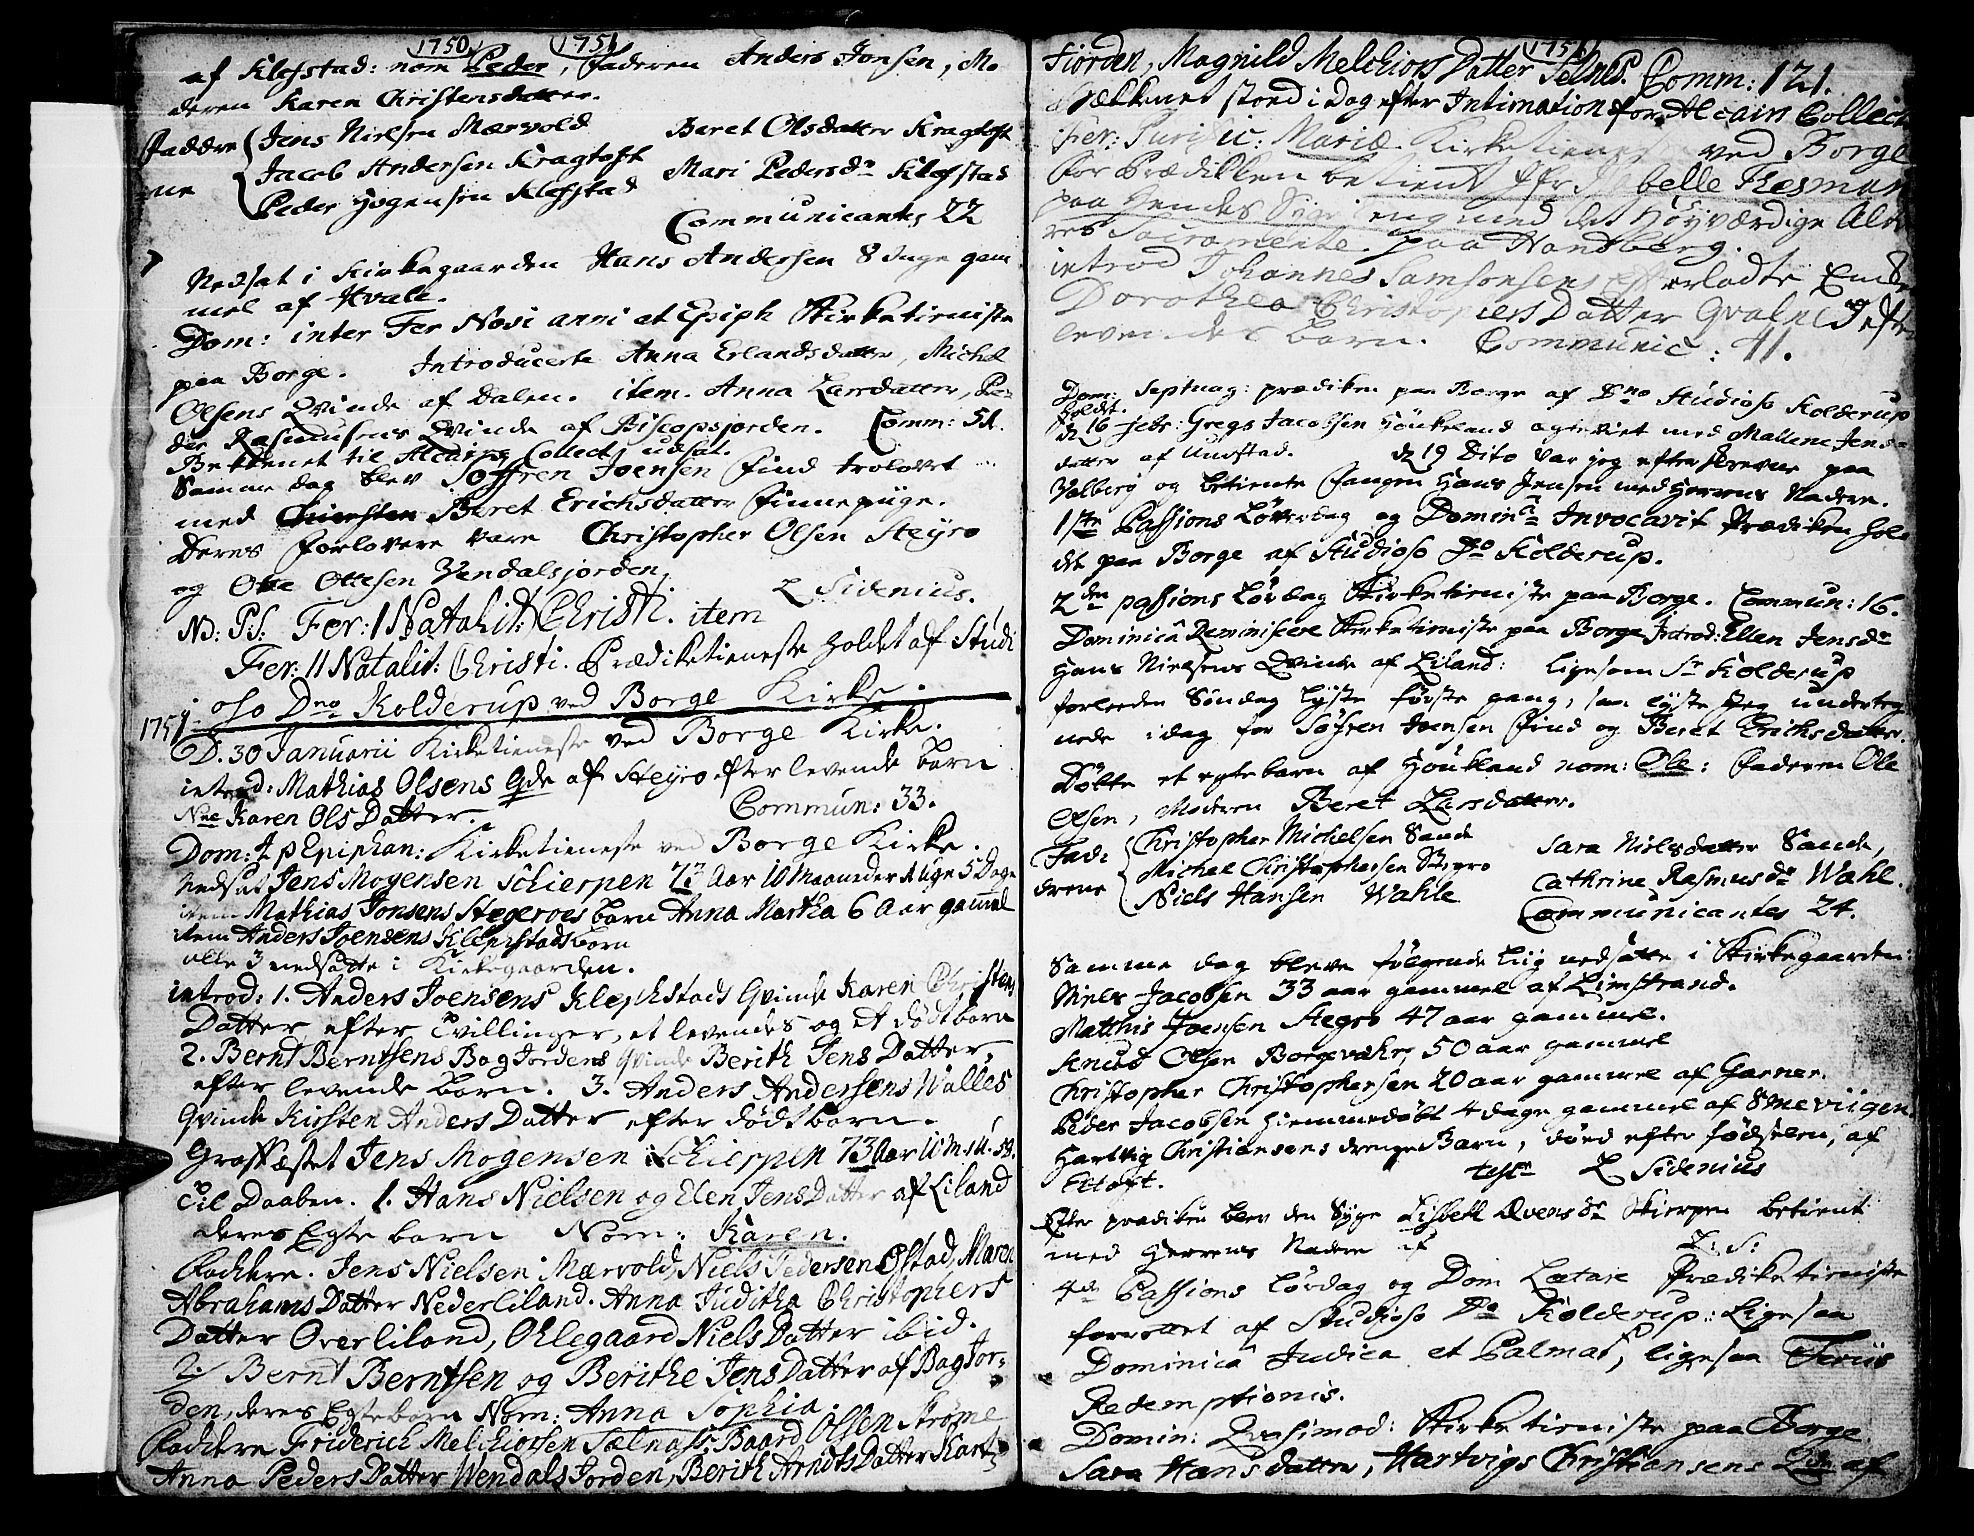 1750. 1751
af Klefstad: nom Peder, Faderen Anders Jonsen, Mo
deren Karen Christensdatter.
Faddre Jens Nielsen Mærvold Beret Olsdatter Kragtoft
ne Jacob Andersen Kragtoft Mari Pedersdr Klefstad
Peder Hogensen Klefstad
Communicantes 22
Nedsat i Kirkegaarden Hans Andersen 8 Uuge gam
mel af Hvale.
Dom: inter Fer Novi anni et Epiph Kirketieniste
paa Borge. Introducerte Anna Erlandsdatter, Michel
Olsens Qvinde af Dalen. item. Anna Larsdatter, Pe-
der Rasmusens Qvinde af Biscopsjorden. Comm: 51.
Bekkenet til Collect udsat.
Samme dag blev Søffren Joensen Find trolovet
med Beret Erichsdatter Finnepiige.
Deres Forlovere vare Christopher Olsen Steyro
og Ole Ottesen Vendalsjorden.
L Sidenius.
NB: PS: Fer: 1 Natalit: Christi. item
Fer: 11 Natalit: Christi. Prædiketieneste holdet af Studi
oso Dno Kolderup ved Borge Kirke.
1751. D. 30 Januarii Kirketieneste ved Borge Kirke.
introd: Mathias Olsens Qde af Steyro efter levende barn
Nne Karen Ols Datter. Commun: 33.
Dom: 4 p Epiphan: Kirketieneste ved Borge Kirke.
Nedsat Jens Mogensen Schierpen 73 Aar 10 Maaneder 1 Uge 5 Dage
item Mathias Jonsens Stegeroes barn Anna Martha 6 Aar gammel
item Anders Joensens Klephstads barn
alle 3 nedsatte i Kirkegaarden.
introd: 1. Anders Joensens Klephstads Qvinde Karen Christens
Datter efter Tvillinger, et levendes og et dødt barn
2. Bernt Berntsens Bag Jordens Qvinde Berith Jens Datter,
efter levende barn. 3. Anders Andersens Walles
Qvinde Kirsten Anders Datter efter dødt barn.
Graffæstet Jens Mogensen Schierppen 73 Aar
Til Daaben. 1. Hans Nielsen og Elen Jens Datter af Liland
deres Egte barn Nom: Karen.
Faddere. Jens Nielsen Mærvold, Niels Pedersen Østad, Maren
Abrahams Datter Nederliland. Anna Juditha Christophers
Datter Overliland, Ohlegaard Niels Datter ibid.
2/ Bernt Berntsen og Berithe Jens Datter af Bag Jor-
den, deres Egte barn Nom: Anna Sophia.
Faddere Friderich Melchiorsen Sælnass: Baard Olssen Strøme
Anna Peders Datter Wendals Jorden, Berith Arndts Datter
1751
Fiorden, Magnild Melchiors Datter Selnes. Comm: 121.
Bækkenet stoed i Dag efter Intimation for Collect
Fer: Purific: Mariæ. Kirketieneste ved Borge
for Prædikken betient Jfr belle
paa Hendes Syge seng med det Høyværdige Alte
res Sacramente. paa Handberg.
introd Johannes Samsonsens Efterladte Enke
Dorothea Christophers Datter Qvalne efter
levendes barn. Communic: 41.
Dom: Septuag: prædiken paa Borge af Dno Studioso Kolderup
holdt.
d 16 Febr: Gregs Jacobsen Høukeland egteviet med Mallene Jens-
datter af Uunstad. d 19 Dito var jeg efter paa
Valberg og betiente Fangen Hans Jensen med Herrens Nadere.
1ste Passions Løverdag og Dominca Invocavit Prædiken hol
det paa Borge af Studioso Do Kolderup.
2den passions Løvdag Kirketieniste paa Borge. Commun: 16.
Dominica Reminiscere Kirketieniste paa Borge Introd: Ellen Jensdr
Hans Nielsens Qvinde af Liland: ligesom Sr Kolderup
forleeden Søndag lyste første gang, saa lyste Jeg underteg
nede i dag for Søfren Joensen Find og Beret Erichsdatter.
Døbte et egte barn af Houkland nom: Ole: Faderen Ole
Olsen, Moderen Beret Larsdatter.
Fad- Christopher Michelsen Sande Sara Nielsdatter Sande,
drene Michel Christophersen Steyro Cathrine Rasmusdr Wahl.
Niels Hansen Wahle Communicantes 24.
Samme dag bleve følgende Liig nedsatte i Kirkegaarden:
Niels Jacobsen 33 aar gammel af Limstrand.
Matthis Joensen Stegro 47 aar gammel.
Knud Olsen Borgevahr 50 aar gammel
Christopher Christophersen 20 aar gammel af Garner.
Peder Jacobsen hiemmedøbt 4 dage gammel af Smeviigen
Hartvig Christiansens drenge Barn, døed efter fødselen, af
Eltoft. test L Sidenius
Efter prædiken blev den Syge Lisbeth Ovensdr Skierpen betient
med Herrens Nadere af L: S:
4de Passions Løvdag og Dom Lætare Prædiketieniste
forrettet af Studioso Do Kolderup: Ligesaa
Dominica Judica et Palmar, ligesaa Feriis
Redemptionis.
Domin: Qvasimod: Kirketieniste paa Borge.
Sara Hansdatter, Hartvigs Christiansens Qde af